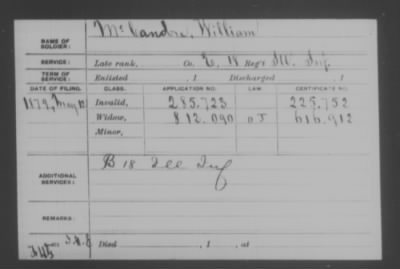 NAME OF SOLDIER: McCandre, William
SERVICE: Late rank, Co. E, 18 Reg't Ill. Inf.
TERM OF SERVICE: Enlisted , 1 Discharged , 1
DATE OF FILING. CLASS. APPLICATION NO. LAW. CERTIFICATE NO.
1879, May 12 Invalid, 285.723 225.752
Widow, 812.090 o J 616.912
Minor,
ADDITIONAL SERVICES: B 18 Ill Inf
REMARKS:
Died , 1 , at